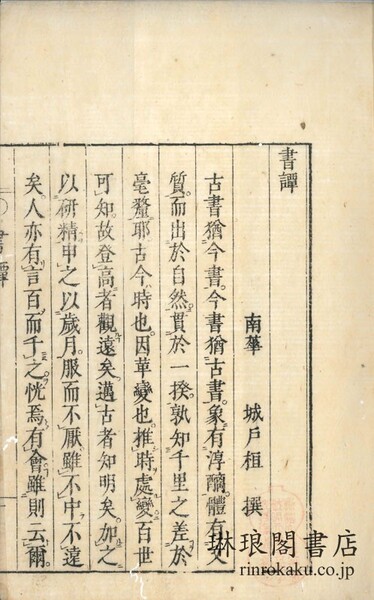 書譚
南峯 城戶桓 撰
古書猶今書今書猶古書象有淳醨體有文
質而出於自然貫於一揆孰知千里之差於
毫釐耶古今時也因革變也推時處變百世
可知故登高者觀遠矣邁古者知明矣加之
以研精申之以歲月服而不厭雖不中不遠
矣人亦有言百而千之恍焉有會雖則云爾
書譚
琳琅閣書店
rinrokaku.co.jp